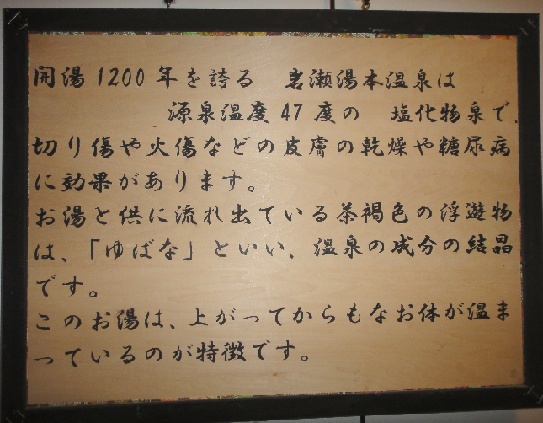 開湯1200年を誇る 岩瀬湯本温泉は
源泉温度47度の 塩化物泉で、
切り傷や火傷などの皮膚の乾燥や糖尿病
に効果があります。
お湯と供に流れ出ている茶褐色の浮遊物
は、「ゆばな」といい、温泉の成分の結晶
です。
このお湯は、上がってからもなお体が温ま
っているのが特徴です。